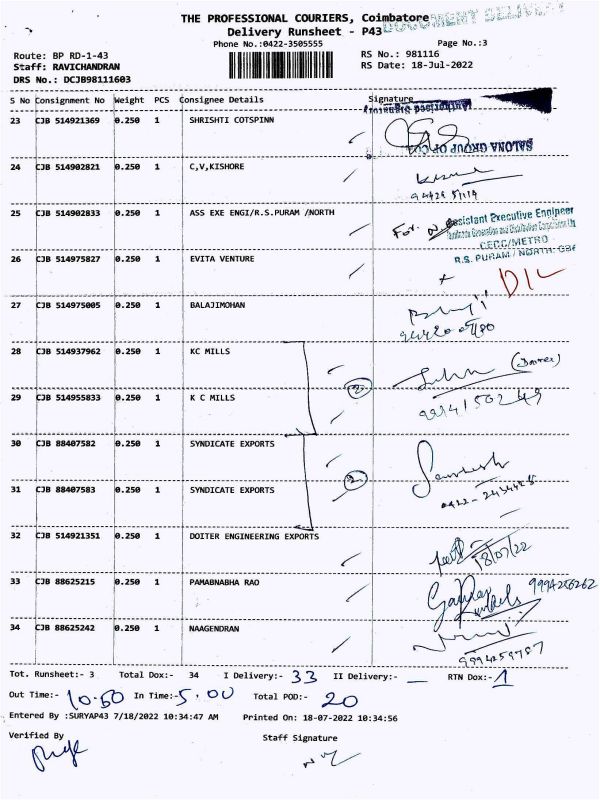 THE PROFESSIONAL COURIERS, Coimbatore
DOCUMENT DELIVERY
Delivery Runsheet - P43
Phone No.:0422-3505555
Page No.:3
Route: BP RD-1-43
RS No.: 981116
Staff: RAVICHANDRAN
RS Date: 18-Jul-2022
DRS No.: DCJB98111603
S No Consignment No Weight PCS Consignee Details Signature
Authorised Signatory
23 CJB 514921369 0.250 1 SHRISHTI COTSPINN
SALONA GROUP OF
24 CJB 514902821 0.250 1 C,V,KISHORE
25 CJB 514902833 0.250 1 ASS EXE ENGI/R.S.PURAM /NORTH
For
Assistant Executive Engineer
Generation and Distribution Corporation Ltd
CEDC/METRO
R.S. PURAM / NORTH
26 CJB 514975827 0.250 1 EVITA VENTURE
D/L
27 CJB 514975005 0.250 1 BALAJIMOHAN
28 CJB 514937962 0.250 1 KC MILLS
2
29 CJB 514955833 0.250 1 K C MILLS
30 CJB 88407582 0.250 1 SYNDICATE EXPORTS
2
31 CJB 88407583 0.250 1 SYNDICATE EXPORTS
32 CJB 514921351 0.250 1 DOITER ENGINEERING EXPORTS
18/07/22
33 CJB 88625215 0.250 1 PAMABNABHA RAO
34 CJB 88625242 0.250 1 NAAGENDRAN
Tot. Runsheet:- 3 Total Dox:- 34 I Delivery:- 33 II Delivery:- — RTN Dox:- 1
Out Time:- 10.50 In Time:- 5.00 Total POD:- 20
Entered By :SURYAP43 7/18/2022 10:34:47 AM Printed On: 18-07-2022 10:34:56
Verified By Staff Signature